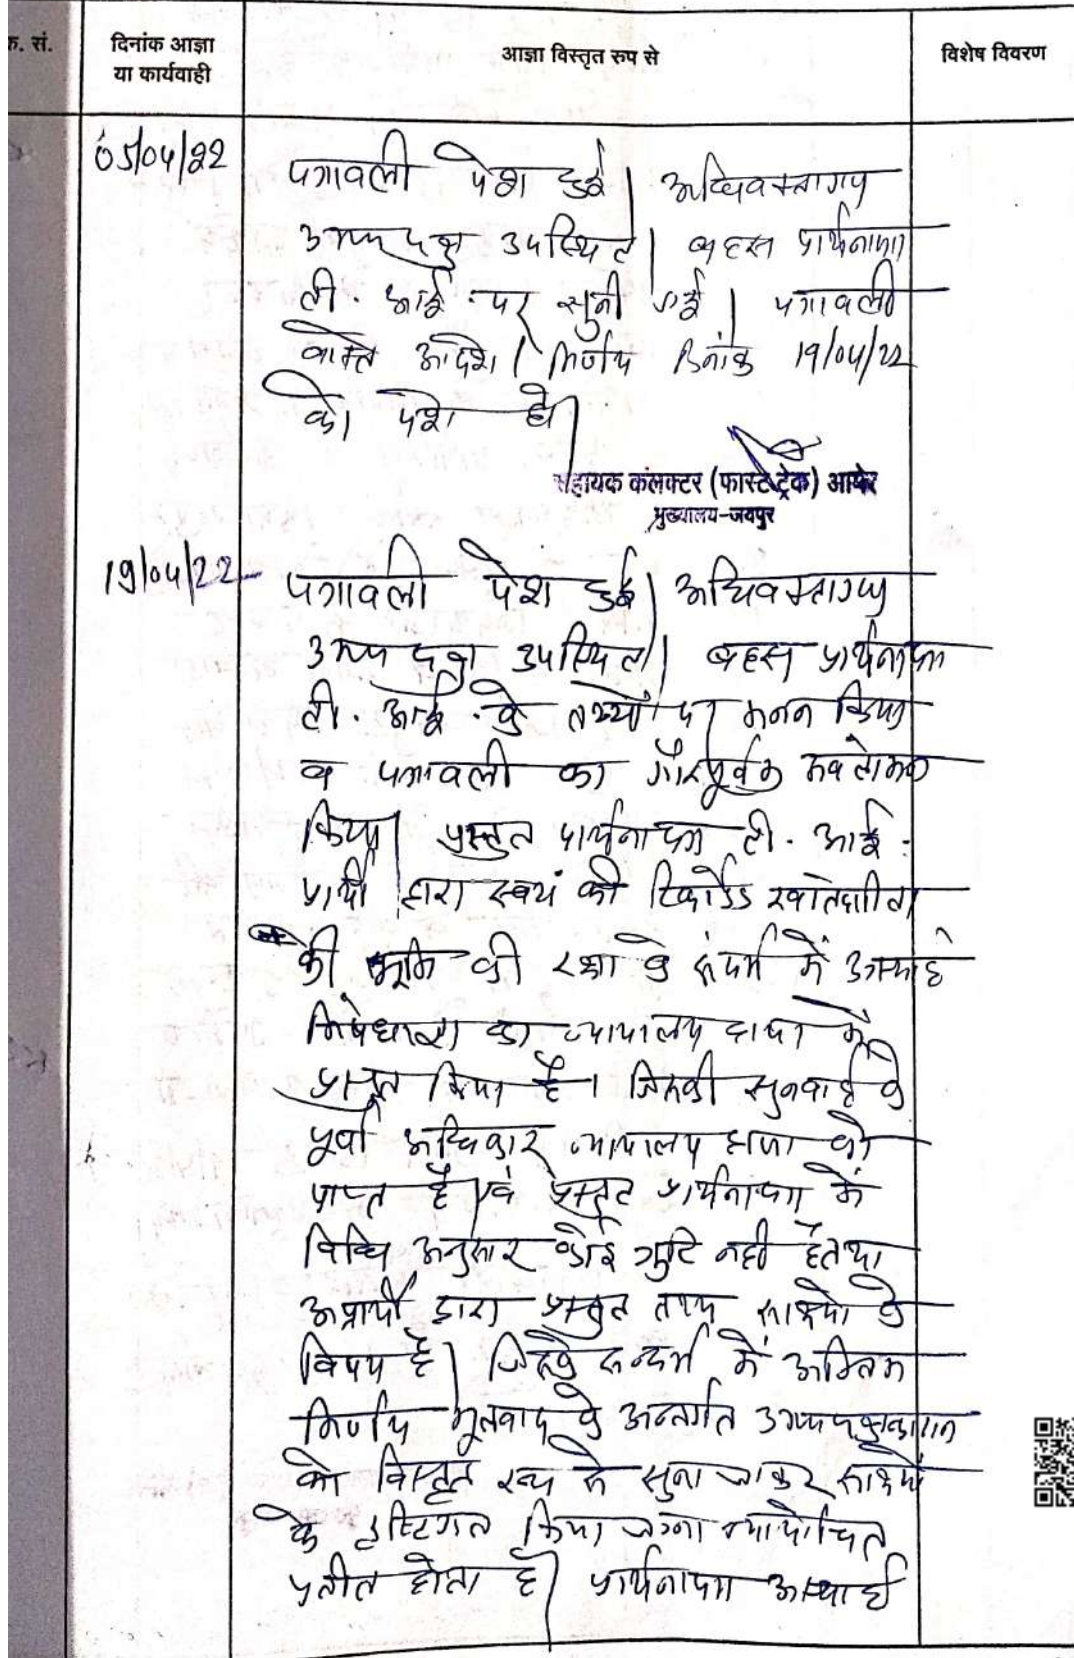 क. सं. दिनांक आज्ञा या कार्यवाही आज्ञा विस्तृत रुप से विशेष विवरण
05/04/22 पत्रावली पेश हुई। अधिवक्तागण
उभय पक्ष उपस्थित। बहस प्रार्थनापत्र
टी. आई. पर सुनी गई। पत्रावली
वास्ते आदेश / निर्णय दिनांक 19/04/22
को पेश हो।
सहायक कलक्टर (फास्ट ट्रेक) आमेर
मुख्यालय-जयपुर
19/04/22 पत्रावली पेश हुई। अधिवक्तागण
उभय पक्ष उपस्थित। बहस प्रार्थनापत्र
टी. आई. के तथ्यों पर मनन किया
व पत्रावली का गौरपूर्वक अवलोकन
किया। प्रस्तुत प्रार्थनापत्र टी. आई.
प्रार्थी द्वारा स्वयं की रिकॉर्डेड खातेदारी
की भूमि की रक्षा के संदर्भ में अस्थाई
निषेधाज्ञा का न्यायालय में
प्रस्तुत किया है। जिसकी सुनवाई के
पूर्ण अधिकार न्यायालय हाजा को
प्राप्त है एवं प्रस्तुत प्रार्थनापत्र में
विधि अनुसार कोई त्रुटि नही है तथा
अप्रार्थी द्वारा प्रस्तुत तथ्य साक्ष्यो के
विषय है। जिसके सन्दर्भ में अन्तिम
निर्णय मूलवाद के अन्तर्गत उभय पक्षकारान
को विस्तृत रूप से सुना जाकर साक्ष्यों
के दृष्टिगत किया जाना न्यायोचित
प्रतीत होता है। प्रार्थनापत्र अस्थाई